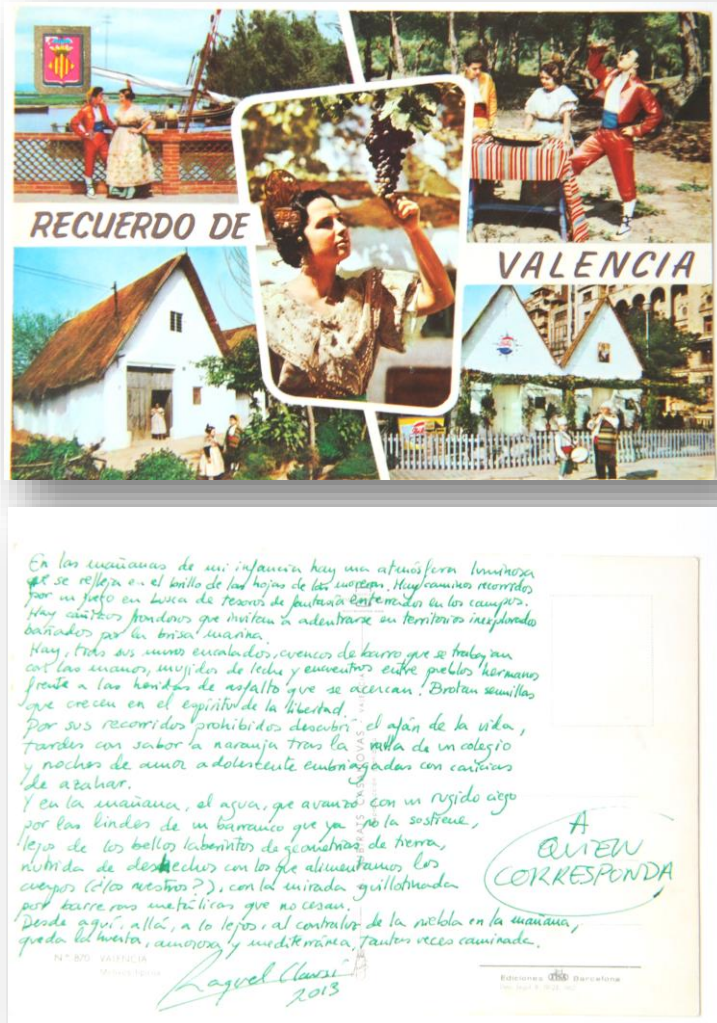 RECUERDO DE
VALENCIA
En las mañanas de mi infancia hay una atmósfera luminosa
que se refleja en el brillo de las hojas de las moreras. Hay caminos recorridos
por un perro en busca de tesoros de fantasía enterrados en los campos.
Hay cañizos frondosos que invitan a adentrarse en territorios inexplorados
bañados por la brisa marina.
Hay, tras sus muros encalados, cuencos de barro que se trabajan
con las manos, mujidos de leche y encuentros entre pueblos hermanos
frente a las heridas de asfalto que se acercan. Brotan semillas
que crecen en el espíritu de la libertad.
Por sus recorridos prohibidos descubrí el afán de la vida,
tardes con sabor a naranja tras la valla de un colegio
y noches de amor adolescente embriagadas con caricias
de azahar.
Y en la mañana, el agua, que avanza con un rugido ciego
por las lindes de un barranco que ya no la sostiene,
lejos de los bellos laberintos de geometrías de tierra,
nutrida de deshechos con los que alimentamos los
cuerpos (¿los nuestros?), con la mirada guillotinada
por barreras metálicas que no cesan.
Desde aquí, allá, a lo lejos, al contraluz de la niebla en la mañana,
queda la huerta, amorosa y mediterránea, tantas veces caminada.
Raquel
2013
A
QUIEN
CORRESPONDA
N.º 870. VALENCIA
Ediciones Barcelona